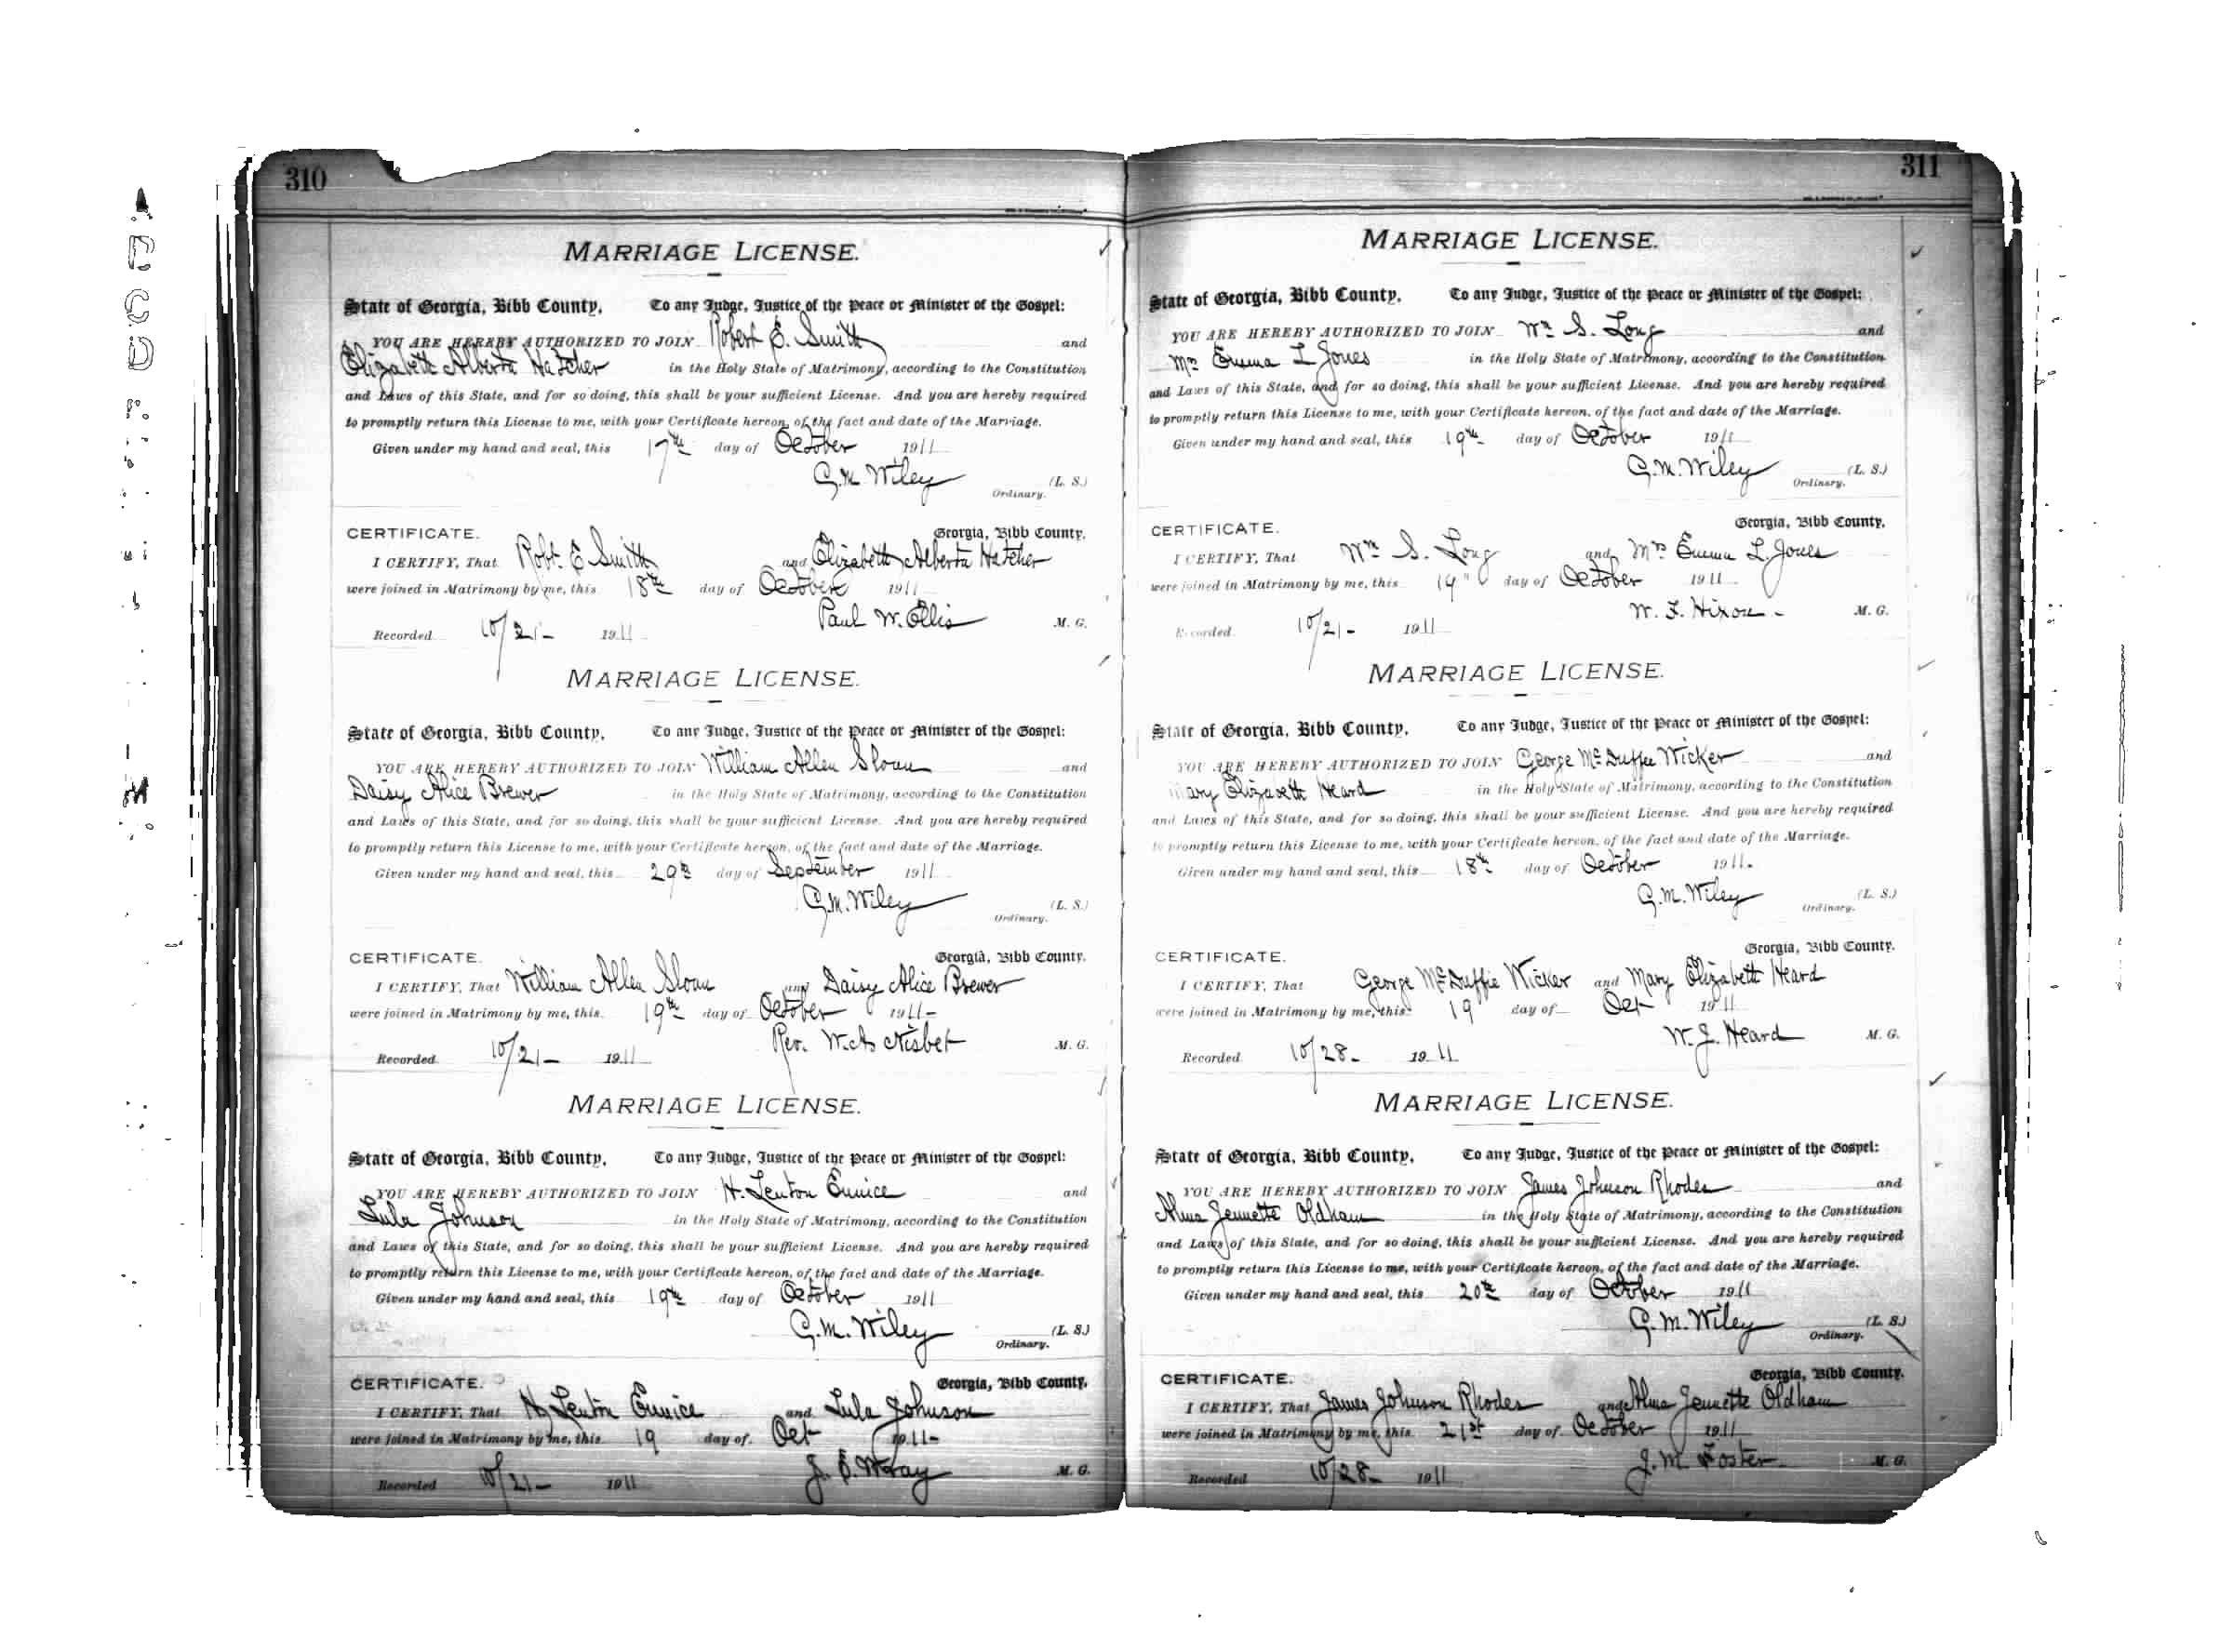 310
MARRIAGE LICENSE.
State of Georgia, Bibb County, To any Judge, Justice of the Peace or Minister of the Gospel:
YOU ARE HEREBY AUTHORIZED TO JOIN Robert E. Smith and
Elizabeth Alberta Hatcher in the Holy State of Matrimony, according to the Constitution
and Laws of this State, and for so doing, this shall be your sufficient License. And you are hereby required
to promptly return this License to me, with your Certificate hereon, of the fact and date of the Marriage.
Given under my hand and seal, this 17th day of October 1911
G. M. Wiley (L. S.)
Ordinary.
CERTIFICATE. Georgia, Bibb County,
I CERTIFY, That Robt. E Smith and Elizabeth Alberta Hatcher
were joined in Matrimony by me, this 18th day of October 1911
Paul W. Ellis M. G.
Recorded 10/21- 1911
MARRIAGE LICENSE.
State of Georgia, Bibb County, To any Judge, Justice of the Peace or Minister of the Gospel:
YOU ARE HEREBY AUTHORIZED TO JOIN William Allen Sloan and
Daisy Alice Brewer in the Holy State of Matrimony, according to the Constitution
and Laws of this State, and for so doing, this shall be your sufficient License. And you are hereby required
to promptly return this License to me, with your Certificate hereon, of the fact and date of the Marriage.
Given under my hand and seal, this 29th day of September 1911
G. M. Wiley (L. S.)
Ordinary.
CERTIFICATE. Georgia, Bibb County.
I CERTIFY, That William Allen Sloan and Daisy Alice Brewer
were joined in Matrimony by me, this 19th day of October 1911-
Rev. Nisbet M. G.
Recorded 10/21- 1911
MARRIAGE LICENSE.
State of Georgia, Bibb County, To any Judge, Justice of the Peace or Minister of the Gospel:
YOU ARE HEREBY AUTHORIZED TO JOIN H. Lenton Eunice and
Lula Johnson in the Holy State of Matrimony, according to the Constitution
and Laws of this State, and for so doing, this shall be your sufficient License. And you are hereby required
to promptly return this License to me, with your Certificate hereon, of the fact and date of the Marriage.
Given under my hand and seal, this 19th day of October 1911
G. M. Wiley (L. S.)
Ordinary.
CERTIFICATE. Georgia, Bibb County.
I CERTIFY, That H Lenton Eunice and Lula Johnson
were joined in Matrimony by me, this 19 day of Oct 1911-
M. G.
Recorded 10/21- 1911
311
MARRIAGE LICENSE.
State of Georgia, Bibb County, To any Judge, Justice of the Peace or Minister of the Gospel:
YOU ARE HEREBY AUTHORIZED TO JOIN Wm S. Long and
Mrs Emma L Jones in the Holy State of Matrimony, according to the Constitution
and Laws of this State, and for so doing, this shall be your sufficient License. And you are hereby required
to promptly return this License to me, with your Certificate hereon, of the fact and date of the Marriage.
Given under my hand and seal, this 19th day of October 1911
G. M. Wiley (L. S.)
Ordinary.
CERTIFICATE. Georgia, Bibb County.
I CERTIFY, That Wm S. Long and Mrs Emma L. Jones
were joined in Matrimony by me, this 19" day of October 1911
W. F. Hixon - M. G.
Recorded 10/21- 1911
MARRIAGE LICENSE.
State of Georgia, Bibb County, To any Judge, Justice of the Peace or Minister of the Gospel:
YOU ARE HEREBY AUTHORIZED TO JOIN George McDuffee Wicker and
Mary Elizabeth Heard in the Holy State of Matrimony, according to the Constitution
and Laws of this State, and for so doing, this shall be your sufficient License. And you are hereby required
to promptly return this License to me, with your Certificate hereon, of the fact and date of the Marriage.
Given under my hand and seal, this 18th day of October 1911.
G. M. Wiley (L. S.)
Ordinary.
CERTIFICATE. Georgia, Bibb County.
I CERTIFY, That George McDuffie Wicker and Mary Elizabeth Heard
were joined in Matrimony by me, this 19 day of Oct 1911
W. J. Heard M. G.
Recorded 10/28- 1911
MARRIAGE LICENSE.
State of Georgia, Bibb County, To any Judge, Justice of the Peace or Minister of the Gospel:
YOU ARE HEREBY AUTHORIZED TO JOIN James Johnson Rhodes and
Alma Jennette Oldham in the Holy State of Matrimony, according to the Constitution
and Laws of this State, and for so doing, this shall be your sufficient License. And you are hereby required
to promptly return this License to me, with your Certificate hereon, of the fact and date of the Marriage.
Given under my hand and seal, this 20th day of October 1911
G. M. Wiley (L. S.)
Ordinary.
CERTIFICATE. Georgia, Bibb County.
I CERTIFY, That James Johnson Rhodes and Alma Jennette Oldham
were joined in Matrimony by me, this 21st day of October 1911
J. M. Foster M. G.
Recorded 10/28- 1911